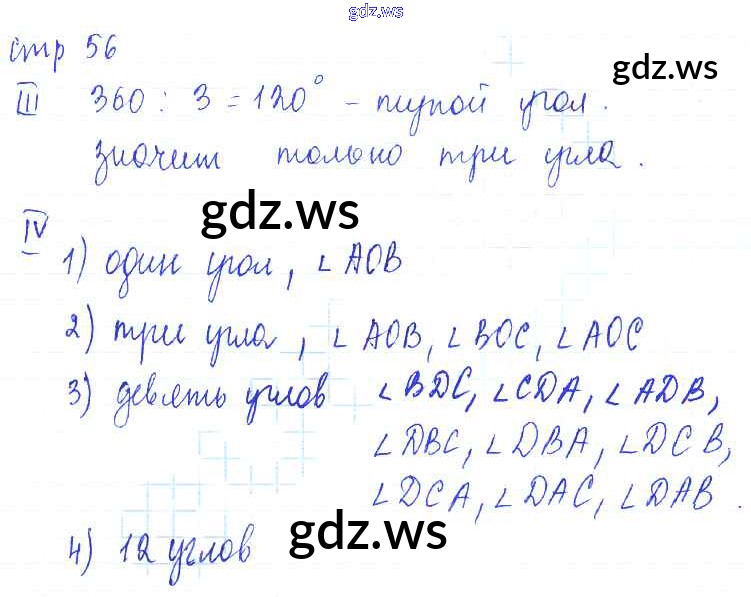 gdz.ws
стр 56
gdz.ws
III 360 : 3 = 120° - тупой угол.
значит только три угла.
gdz.ws
IV
1) один угол, ∠AOB
2) три угла, ∠AOB, ∠BOC, ∠AOC
3) девять углов ∠BDC, ∠CDA, ∠ADB,
∠DBC, ∠DBA, ∠DCB,
∠DCA, ∠DAC, ∠DAB.
gdz.ws
4) 12 углов